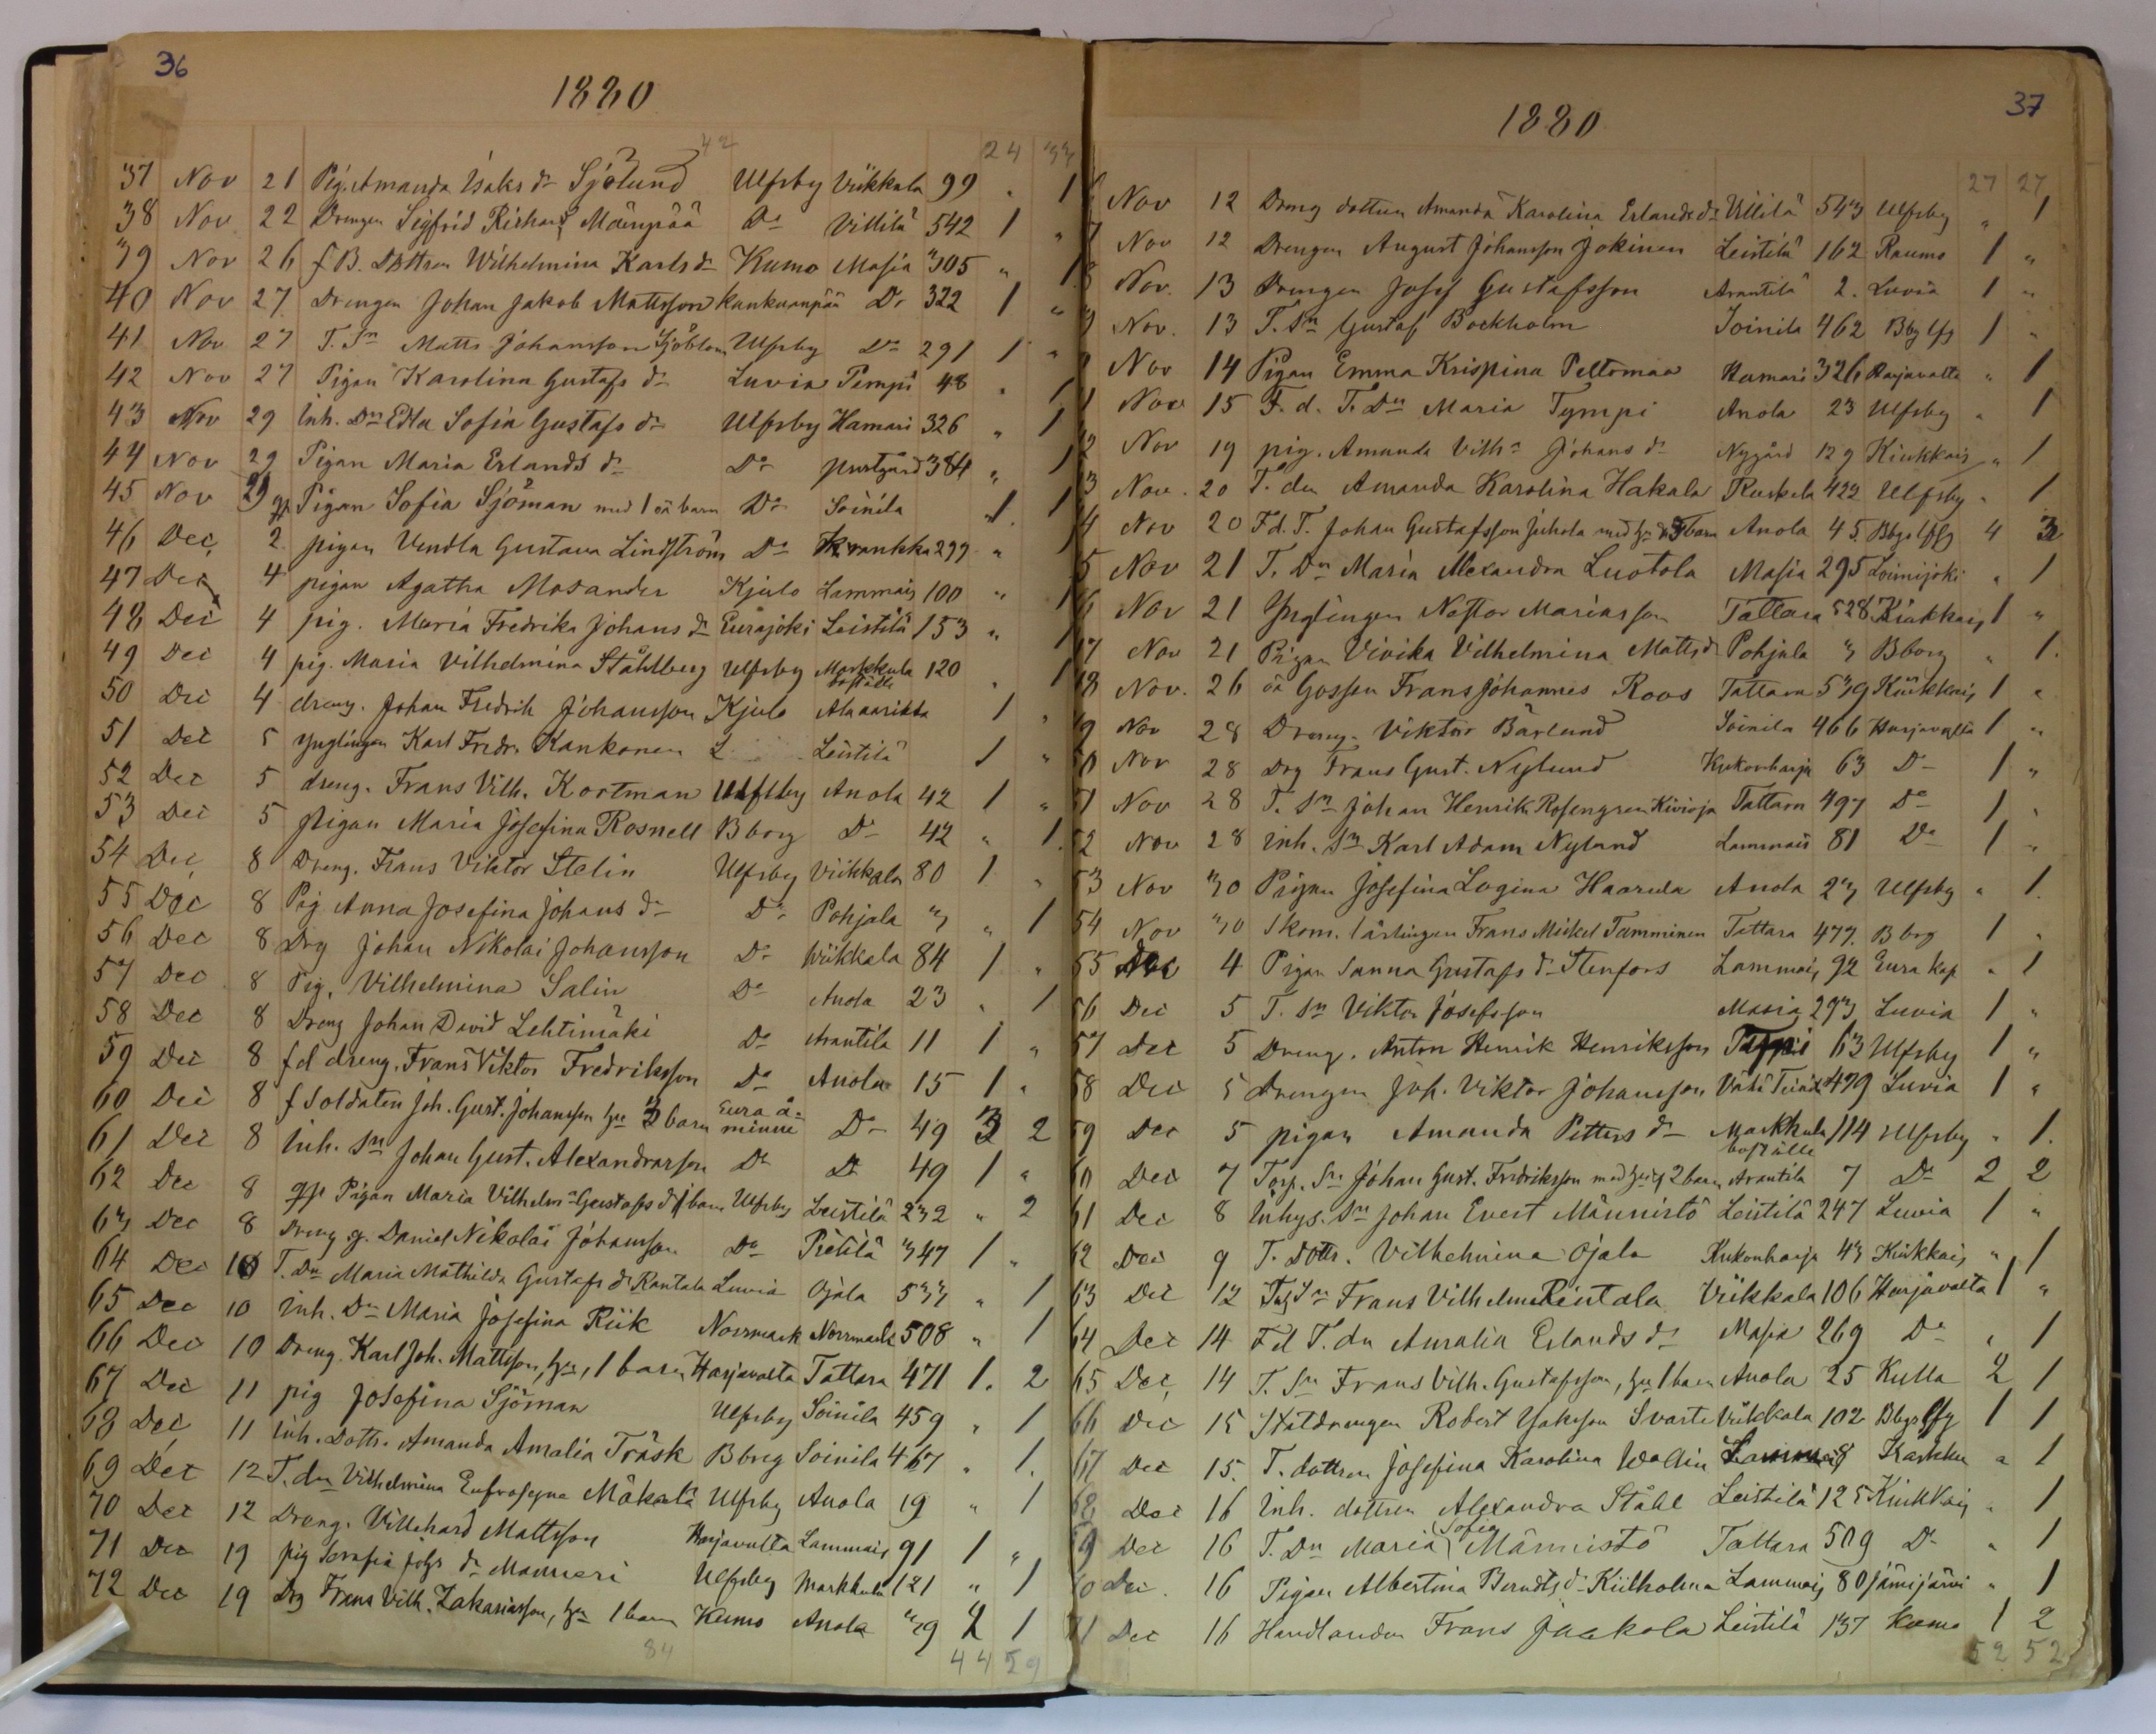 36
1880
42 24 33
37 Nov 21 Pig. Amanda Isaks dr Sjölund Ulfsby Viikkala 99 " 1
38 Nov 22 Drengen Sigfrid Richard Mäenpää Do Villilä 542 1 "
39 Nov 26 f B. Dottren Wilhelmina Karls dr Kumo Masia 305 " 1
40 Nov 27 Drengen Johan Jakob Mattsson Kankaanpää Do 322 1 "
41 Nov 27 T. Sn Matts Johansson Sjöblom Ulfsby Do 291 1 "
42 Nov 27 Pigan Karolina Gustafs dr Luvia Tempi 48 " 1
43 Nov 29 Inh. Dn Edla Sofia Gustafs dr Ulfsby Hamari 326 " 1
44 Nov 29 Pigan Maria Erlands dr Do 384 " 1
45 Nov 29 Pigan Sofia Sjöman med 1 oä barn Do Soinila " 1
46 Dec 2 pigan Vendla Gustava Lindström Do 299 "
47 Dec 4 pigan Agatha Mosander Kjulo Lammais 100 " 1
48 Dec 4 pig. Maria Fredrika Johans dr Eurajoki Leistilä 153 " 1
49 Dec 4 pig. Maria Vilhelmina Ståhlberg Ulfsby Markkula boställe 120 " 1
50 Dec 4 dreng. Johan Fredrik Johansson Kjulo 1 "
51 Dec 5 ynglingen Karl Fredr. Kankonen L Leistilä 1 "
52 Dec 5 dreng. Frans Vilh. Kortman Ulfsby Anola 42 1 "
53 Dec 5 pigan Maria Josefina Rosnell Bborg Do 42 " 1
54 Dec 8 Dreng. Frans Viktor Stelin Ulfsby Viikkala 80 1 "
55 Dec 8 Pig Anna Josefina Johans dr Do Pohjala 3 " 1
56 Dec 8 Drg Johan Nikolai Johansson Do Wiikkala 84 1 "
57 Dec 8 Pig. Vilhelmina Salin Do Anola 23 " 1
58 Dec 8 Dreng Johan David Lehtimäki Do Arantila 11 1 "
59 Dec 8 f d dreng. Frans Viktor Fredriksson Do Anola 15 1 "
60 Dec 8 f Soldaten Joh. Gust. Johansson hu 3 barn Eura å-minne Do 49 3 2
61 Dec 8 Inh. Sn Johan Gust. Alexandersson Do Do 49 1 "
62 Dec 8 Pigan Maria Vilhelmna Gustafs d 1 barn Ulfsby Leistilä 232 " 2
63 Dec 8 Dreng g. Daniel Nikolai Johansson Do Pietilä 347 1 "
64 Dec 10 T. Dn Maria Mathilda Gustafs dr Rantala Luvia Ojala 533 " 1
65 Dec 10 Inh. Dn Maria Josefina Riik Norrmark Norrmark 508 " 1
66 Dec 10 Dreng. Karl Joh. Mattsson, hu, 1 barn Harjavalta Tattara 471 1. 2
67 Dec 11 pig Josefina Sjöman Ulfsby Soinila 459 " 1
68 Dec 11 Inh. Dottr. Amanda Amalia Träsk Bborg Soinila 467 " 1.
69 Dec 12 T. dn Vilhelmina Eufrosyna Mäkelä Ulfsby Anola 19 " 1
70 Dec 12 Dreng. Villehard Mattsson Harjavalta Lammais 91 1 "
71 Dec 19 pig Serafia Johs dr Manneri Ulfsby Markkula 121 " 1
72 Dec 19 Drg Frans Vilh. Zakariasson, hu 1 barn Kumo Anola 39 2 1
84 44 59
37
1880
27 27
6 Nov 12 Dreng dottren Amanda Karolina Erlands dr Villilä 543 Ulfsby " 1
7 Nov 12 Drengen August Johansson Jokinen Leistilä 162 Raumo 1 "
8 Nov. 13 Drengen Josef Gustafsson Arantila 2. Luvia 1 "
9 Nov. 13 T. Sn Gustaf Bockholm Soinila 462 Bbg lfg 1 "
Nov 14 Pigan Emma Krispina Peltomaa Hamari 326 Harjavalta " 1
1 Nov 15 F. d. T. Dn Maria Tympi Anola 23 Ulfsby " 1
2 Nov 19 pig. Amanda Vilha Johans dr Nygård 129 Kiukkais " 1
3 Nov. 20 T. dn Amanda Karolina Hakala Ruskela 422 Ulfsby " 1
4 Nov 20 Fd. T. Johan Gustafsson Juhola med hu barn Anola 45 Bbgs lfg 4 3
5 Nov 21 T. Dn Maria Alexandra Luotola Masia 295 Loimijoki " 1
6 Nov 21 Ynglingen Nestor Mariasson Tattara 528 Kiukkais 1 "
47 Nov 21 Pigan Vivika Vilhelmina Mattsd Pohjala 3 Bborg " 1.
48 Nov. 26 oä Gossen Frans Johannes Roos Tattara 539 Kiukkais 1 "
49 Nov 28 Dreng. Viktor Bärlund Soinila 466 Harjavalta 1 "
50 Nov 28 Drg Frans Gust. Nylund Kukonharja 63 Do 1 "
51 Nov 28 T. Sn Johan Henrik Rosengren Kivioja Tattara 497 Do 1 "
52 Nov 28 Inh. Sn Karl Adam Nylund Lammais 81 Do 1 "
53 Nov 30 Pigan Josefina Lovina Haarula Anola 23 Ulfsby " 1.
54 Nov 30 Skom. lärlingen Frans Mickel Tamminen Tattara 477. Bborg 1 "
55 Dec 4 Pigan Sanna Gustafs dr Stenfors Lammais 92 Eura kap " 1
56 Dec 5 T. Sn Viktor Josefsson Masia 293 Luvia 1 "
57 Dec 5 Dreng. Anton Henrik Henriksson 63 Ulfsby 1 "
58 Dec 5 Drengen Joh. Viktor Johansson 479 Luvia 1 "
59 Dec 5 pigan Amanda Petters dr Markkula boställe 114 Ulfsby " 1.
60 Dec 7 Torp. Sn Johan Gust. Fredriksson med hu o 2 barn Arantila 7 Do 2 2
61 Dec 8 Inhys. Sn Johan Evert Männistö Leistilä 247 Luvia 1 "
62 Dec 9 T. Dottr. Vilhelmina Ojala Kukonharja 43 Kiukkais " 1
63 Dec 12 Sn Frans Vilhelm Rintala Viikkala 106 Harjavalta 1 "
64 Dec 14 Fd T. dn Amalia Erlands dr Masia 269 Do " 1
65 Dec 14 T. Sn Frans Vilh. Gustafsson, hu 1 barn Anola 25 Kulla 2 1
66 Dec 15 Statdrengen Robert Isaksson Svarte Viikkala 102 Bbgs lfg 1 1
67 Dec 15. T. dottren Josefina Karolina Wallin Lammais 8 Karkku " 1
68 Dec 16 Inh. dottren Alexandra Ståhl Leistilä 125 Kiukkais " 1
69 Dec 16 T. Dn Maria Sofia Männistö Tattara 509 Do " 1
70 Dec. 16 Pigan Albertina Berndts dr Kiilholma Lammais 80 Jämijärvi " 1
71 Dec 16 Handlanden Frans Jaakola Leistilä 137 Kumo 1 2
52 52